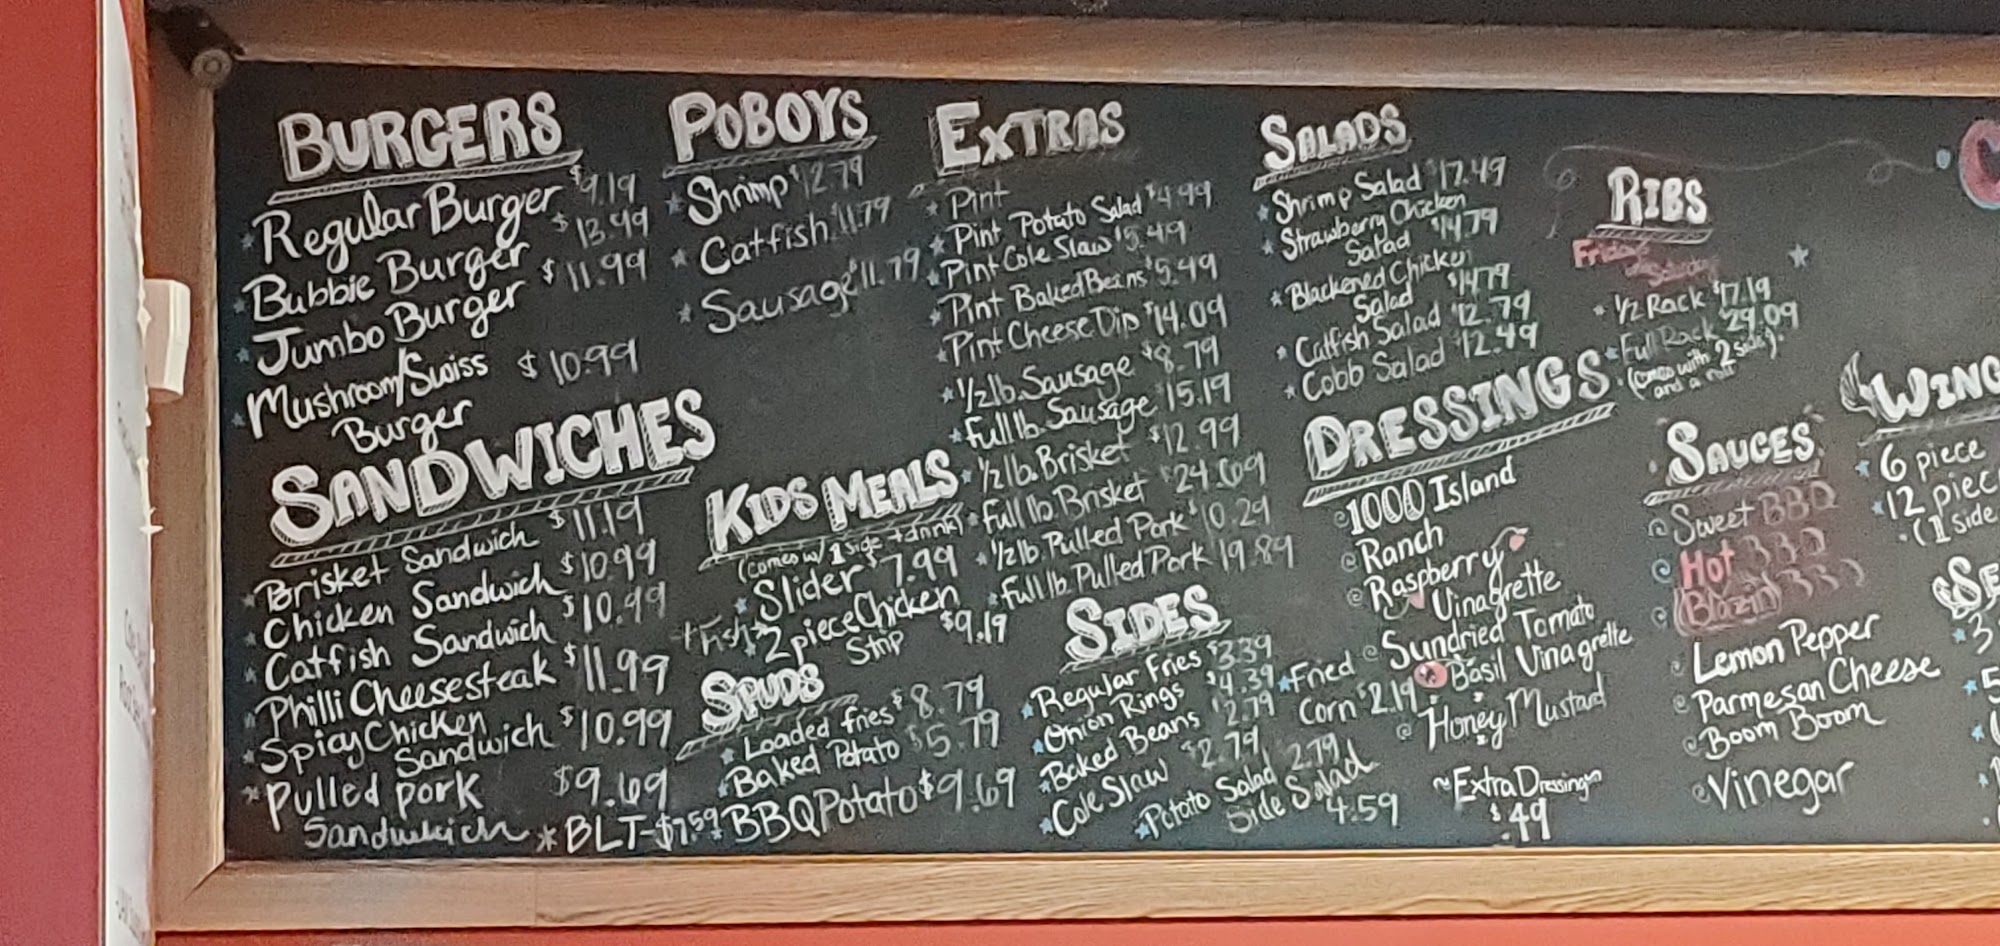 BURGERS
Regular Burger $9.19
Bubbie Burger $13.49
Jumbo Burger $11.99
Mushroom/Swiss $10.99
Burger
SANDWICHES
Brisket Sandwich $11.19
Chicken Sandwich $10.99
Catfish Sandwich $10.99
Philli Cheesesteak $11.99
Spicy Chicken
Sandwich $10.99
Pulled pork $9.69
Sandwich
* BLT-$7.59
POBOYS
Shrimp $12.79
Catfish $11.79
Sausage $11.79
KIDS MEALS
(comes w/ 1 side + drink)
Slider $7.99
+Fish
2 piece Chicken
Strip $9.19
SPUDS
Loaded fries $8.79
Baked Potato $5.79
BBQ Potato $9.69
EXTRAS
Pint
Pint Potato Salad $4.99
Pint Cole Slaw $5.49
Pint Baked Beans $5.49
Pint Cheese Dip $14.09
1/2 lb. Sausage $8.79
Full lb. Sausage $15.19
1/2 lb. Brisket $12.99
Full lb. Brisket $24.69
1/2 lb Pulled Pork $10.29
Full lb. Pulled Pork 19.89
SIDES
Regular Fries $3.39
Onion Rings $4.39
Baked Beans $2.79
Cole Slaw $2.79
Potato Salad 2.79
Side Salad
4.59
Fried
Corn $2.19
SALADS
Shrimp Salad $17.49
Strawberry Chicken
Salad $14.79
Blackened Chicken
Salad $14.79
Catfish Salad $12.79
Cobb Salad $12.49
DRESSINGS
1000 Island
Ranch
Raspberry
Vinagrette
Sundried Tomato
Basil Vinagrette
Honey Mustard
~Extra Dressing~
$.49
RIBS
Friday
Saturday
1/2 Rack $17.19
Full Rack $29.09
(comes with 2 sides)
and a roll
SAUCES
Sweet BBQ
Hot BBQ
(Blazin) BBQ
Lemon Pepper
Parmesan Cheese
Boom Boom
Vinegar
WING
6 piece
12 piec
(1 side
SE
3
5